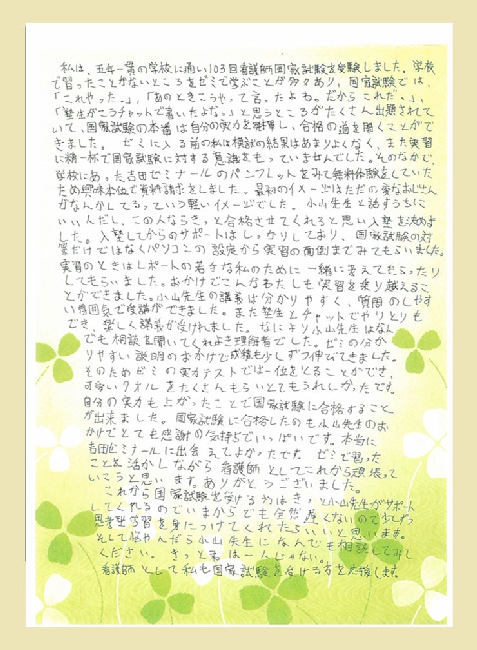 私は、五年一貫の学校に通い103回看護師国家試験を受験しました。学校
で習ったことがないところをゼミで学ぶことが多々あり、国家試験では、
「これやった。」「あのときこうやって言ってたよね。だからこれだ。」、
「塾生がこうチャットで書いたよな。」と思うところがたくさん出題されて
いて、国家試験の本番は自分の実力を発揮し、合格の道を開くことがで
きました。ゼミに入る前の私は模試の結果はあまりよくなく、また実習
に精一杯で国家試験に対する意識をもっていませんでした。そのなかで、
学校にあった吉田ゼミナールのパンフレットをみて無料体験をしていた
ため興味本位で資料請求をしました。最初のイメージはただの変なおじさん
がなんかしてるっていう軽いイメージでした。小山先生と話すうちに
いいんだし、この人ならきっと合格させてくれると思い入塾を決めま
した。入塾してからのサポートはしっかりしており、国家試験の対
策だけではなくパソコンの設定から実習の面倒までみてもらいました。
実習のときはレポートの苦手な私のために一緒に考えてもらったり
してもらいました。おかげでこんなわたしも実習を乗り越えるこ
とができました。小山先生の講義は分かりやすく、質問のしやす
い雰囲気で受講ができました。また塾生とチャットでやりとりも
でき、楽しく講義が受けれました。なにより小山先生はなん
でも相談を聞いてくれよき理解者でした。ゼミの分か
りやすい説明のおかげで成績も少しずつ伸びてきました。
そのためゼミの実力テストでは一位をとることができ、
可愛いタオルをたくさんもらいとてもうれしかったです。
自分の実力も上がったことで国家試験に合格すること
が出来ました。国家試験に合格したのも小山先生のお
かげでとても感謝の気持ちでいっぱいです。本当に
吉田ゼミナールに出会えてよかったです。ゼミで習った
ことを活かしながら看護師としてこれから頑張って
いこうと思います。ありがとうございました。
これから国家試験を受ける方はきっと小山先生がサポート
してくれるのでいまからでも全然遅くないので少しずつ
思考型学習を身につけてくれたらいいと思います。
そして悩んだら小山先生になんでも相談してみて
ください。きっと君は一人じゃない。
看護師として私も国家試験を受ける方を応援します。